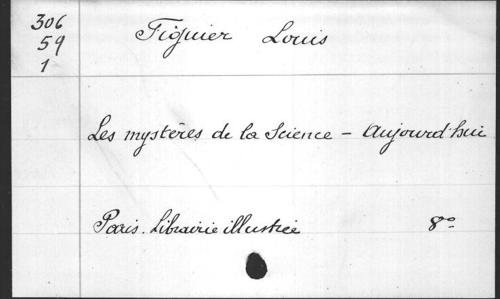 306
59
1
Figuier Louis
Les mystères de la Science - Aujourd'hui
Paris. Librairie illustrée
8°